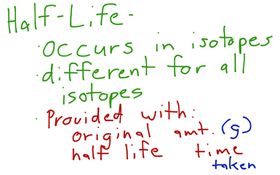 Half-Life-
· occurs in isotopes
· different for all
isotopes
· Provided with:
original amt. (g)
half life time
taken